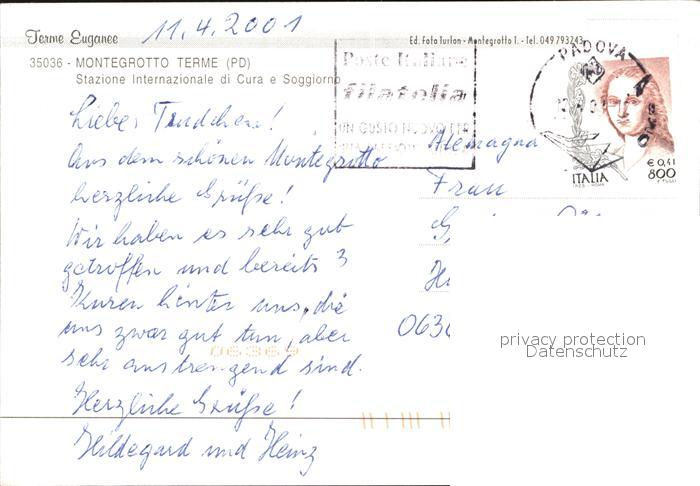 11.4.2001
Terme Euganee
Ed. Foto Turlon - Montegrotto T. - Tel. 049 793243
35036 - MONTEGROTTO TERME (PD)
Stazione Internazionale di Cura e Soggiorno
Poste Italiane
filatelia
UN GUSTO NUOVO
PADOVA
€ 0,41
800
ITALIA
Liebes Trudchen!
Aus dem schönen Montegrotto
herzliche Grüße!
Wir haben es sehr gut
getroffen und bereits 3
Kuren hinter uns, die
uns zwar gut tun, aber
sehr anstrengend sind.
Herzliche Grüße!
Hildegard und Heinz
Alemagna
Frau
G
He
0636
06369
privacy protection
Datenschutz